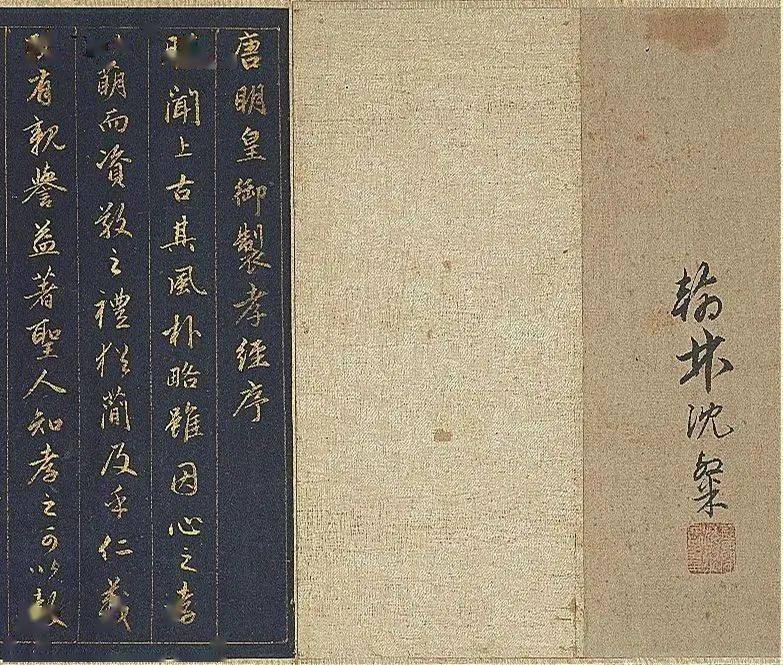 翰林沈粲
唐明皇御製孝經序
聞上古其風朴略雖因心之孝
萌而資敬之禮猶簡及乎仁義
有親譽益著聖人知孝之可以教